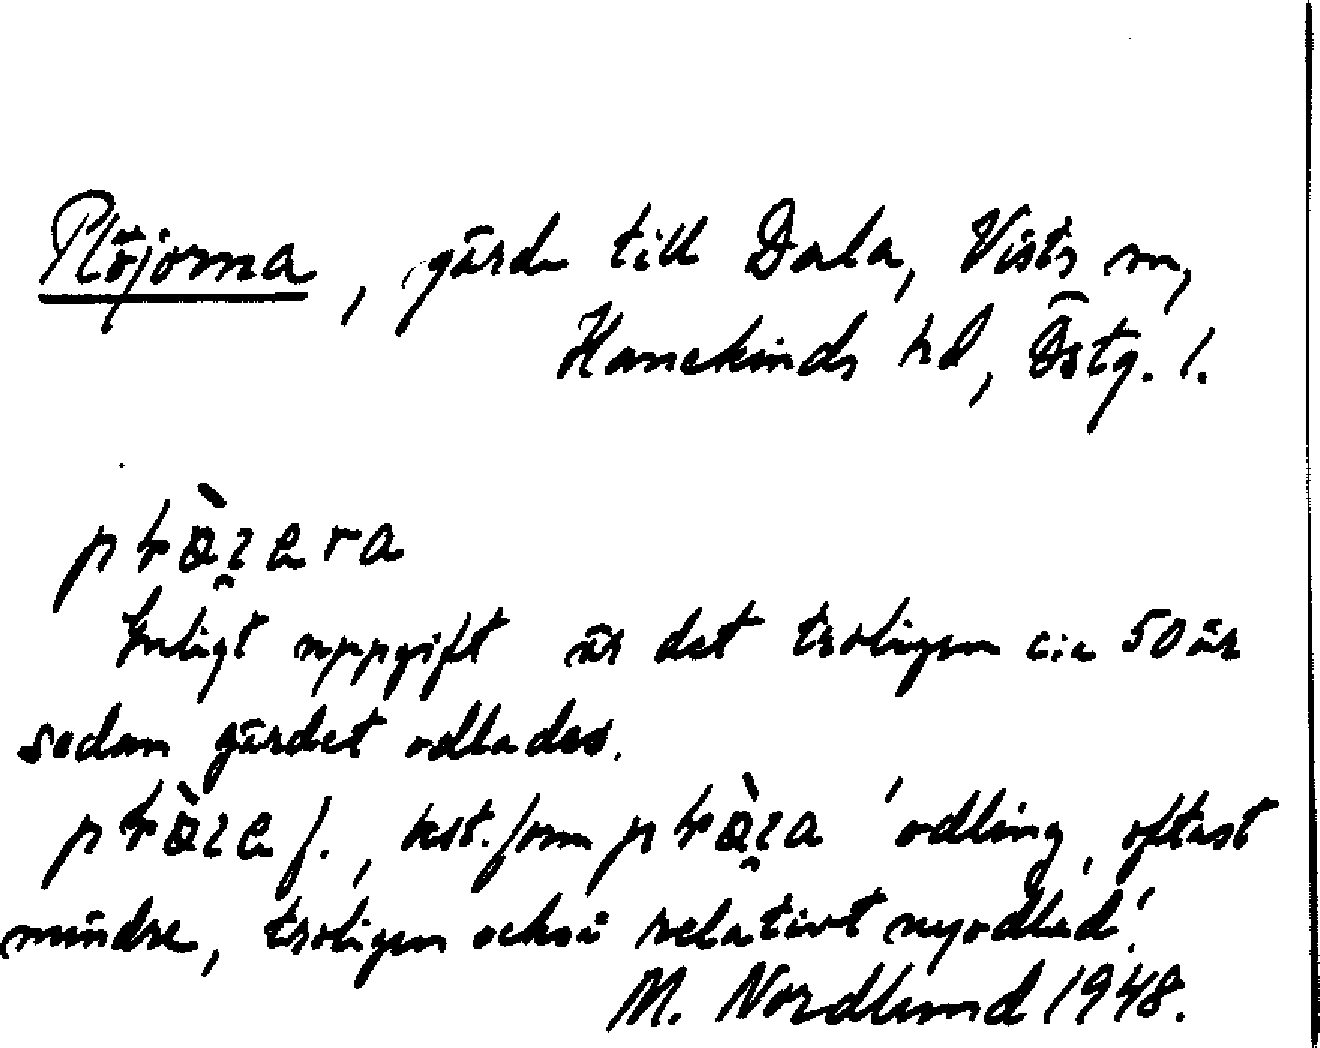 Plöjorna, gärde till Dala, Vists sn,
Hanekinds hd, Östg. l.
Enligt uppgift är det troligen c:a 50 år
sedan gärdet odlades.
f., best. form 'odling, oftast
mindre, troligen också relativt nyodlad'.
M. Nordlund 1948.